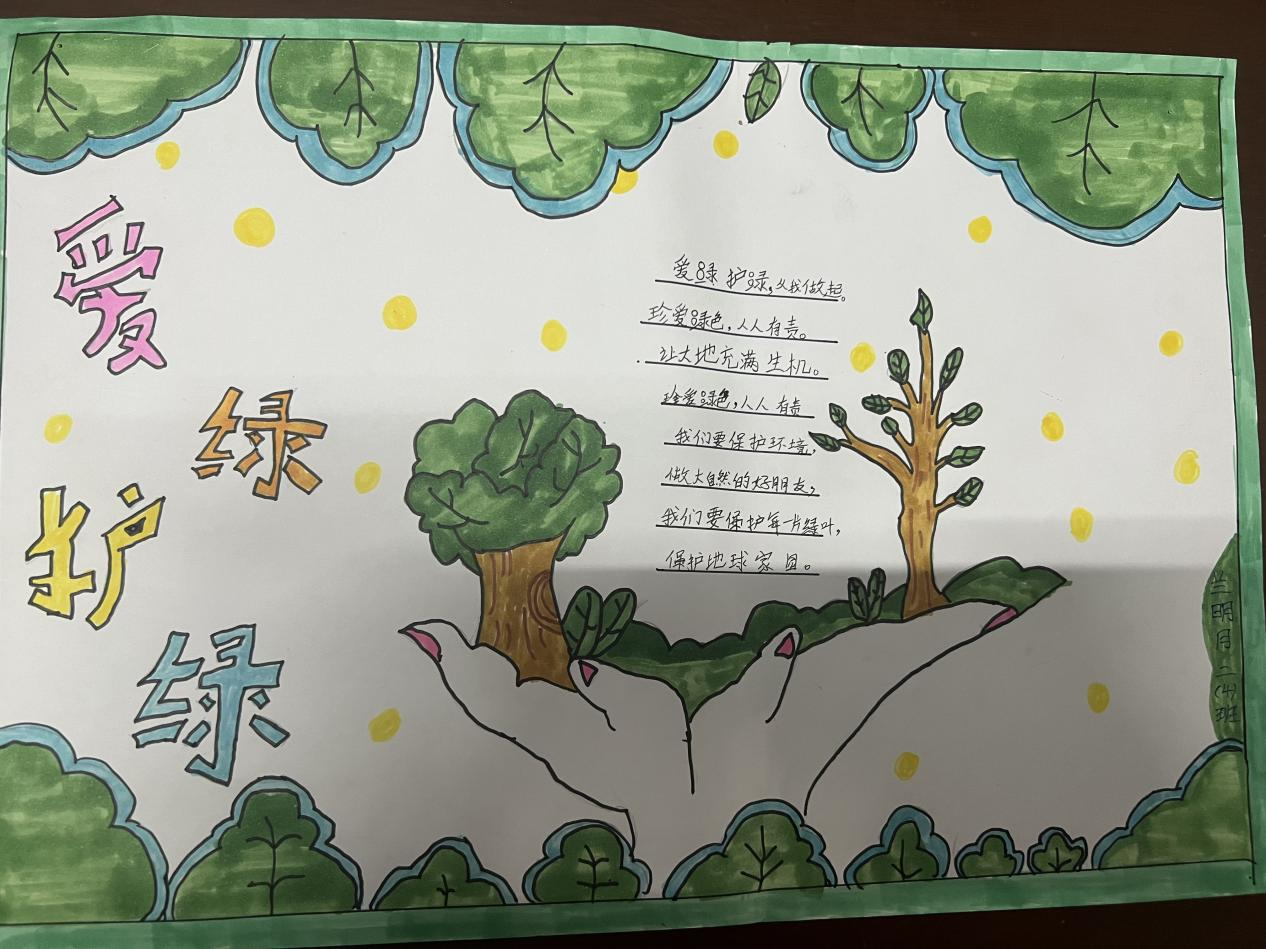 爱
绿
护
绿
爱绿护绿,从我做起。
珍爱绿色,人人有责。
让大地充满生机。
珍爱绿色,人人有责
我们要保护环境,
做大自然的好朋友,
我们要保护每一片绿叶,
保护地球家园。
兰明月二(4)班